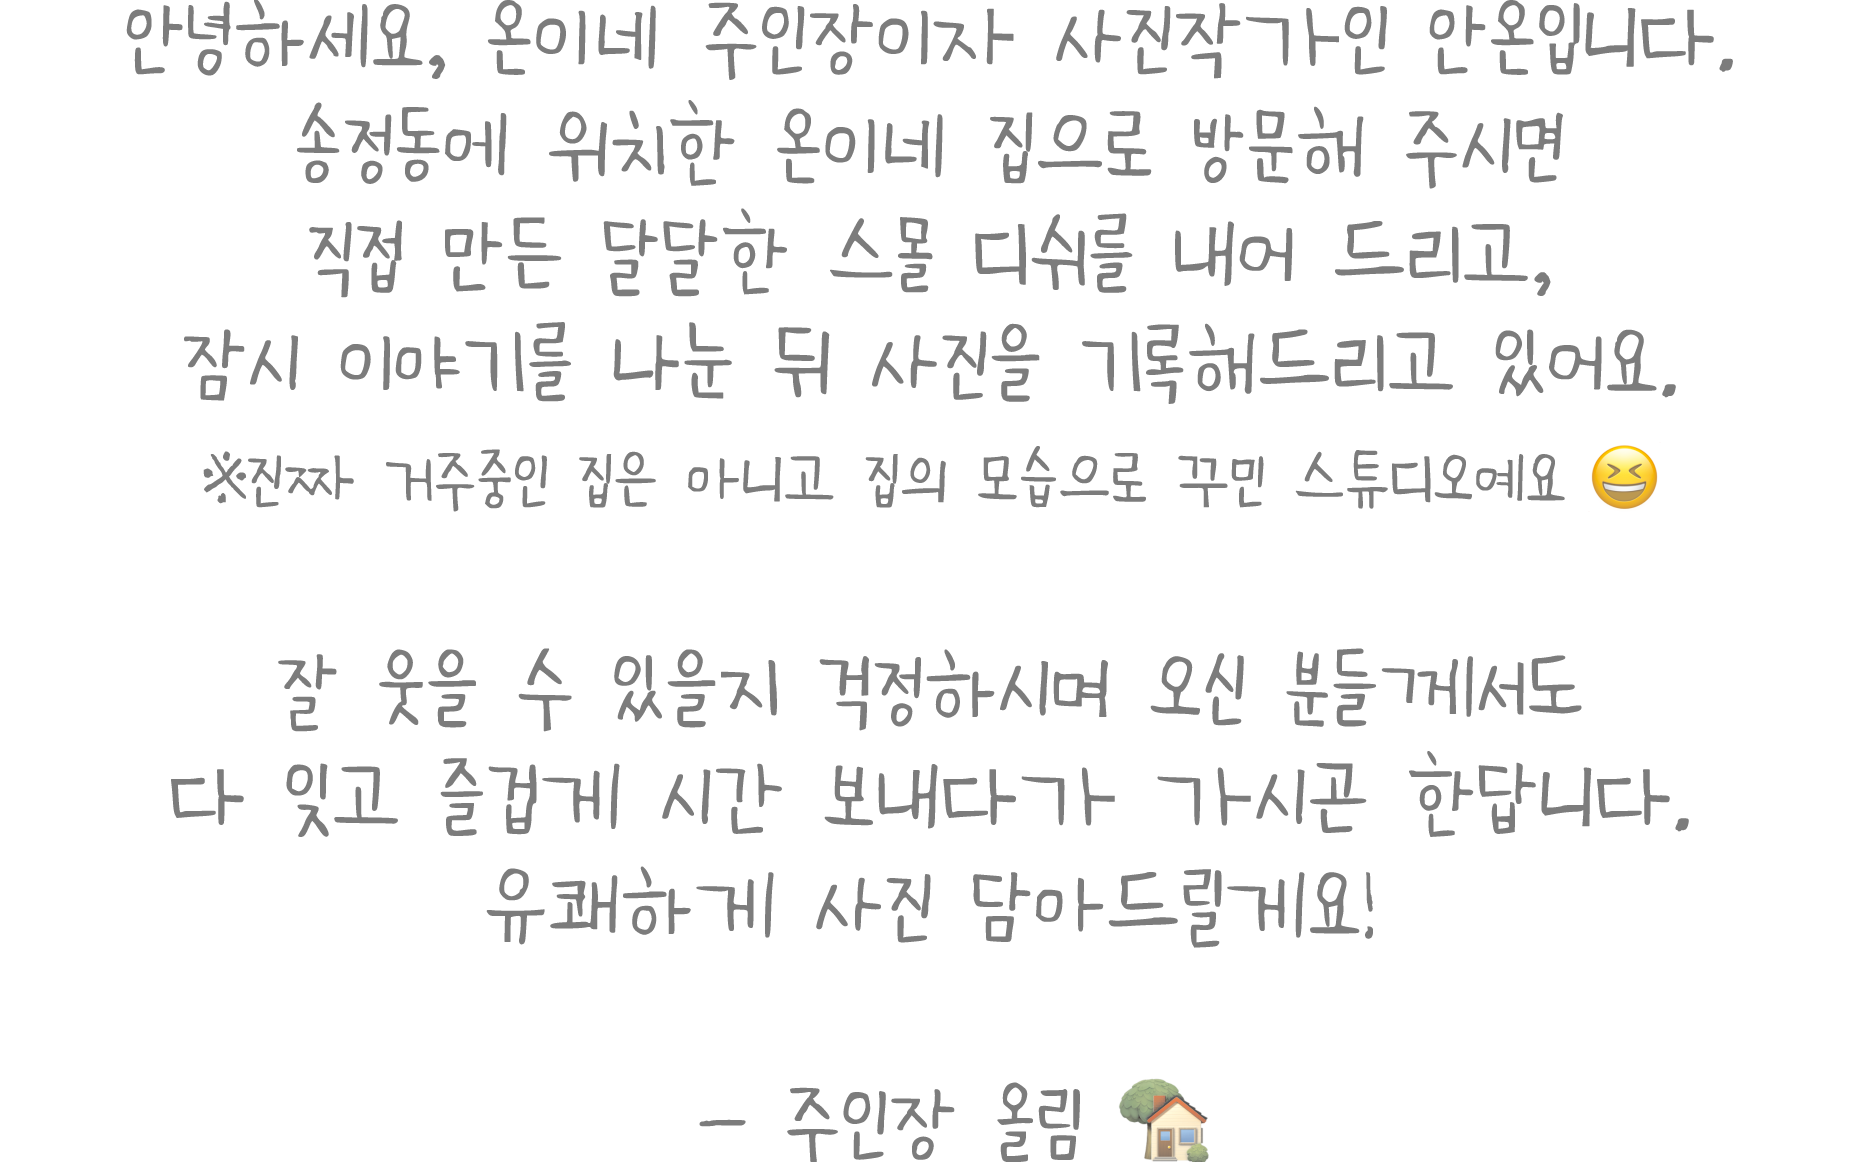 안녕하세요, 온이네 주인장이자 사진작가인 안온입니다.
송정동에 위치한 온이네 집으로 방문해 주시면
직접 만든 달달한 스몰 디쉬를 내어 드리고,
잠시 이야기를 나눈 뒤 사진을 기록해드리고 있어요.
※진짜 거주중인 집은 아니고 집의 모습으로 꾸민 스튜디오예요 😆
잘 웃을 수 있을지 걱정하시며 오신 분들께서도
다 잊고 즐겁게 시간 보내다가 가시곤 한답니다.
유쾌하게 사진 담아드릴게요!
– 주인장 올림 🏡